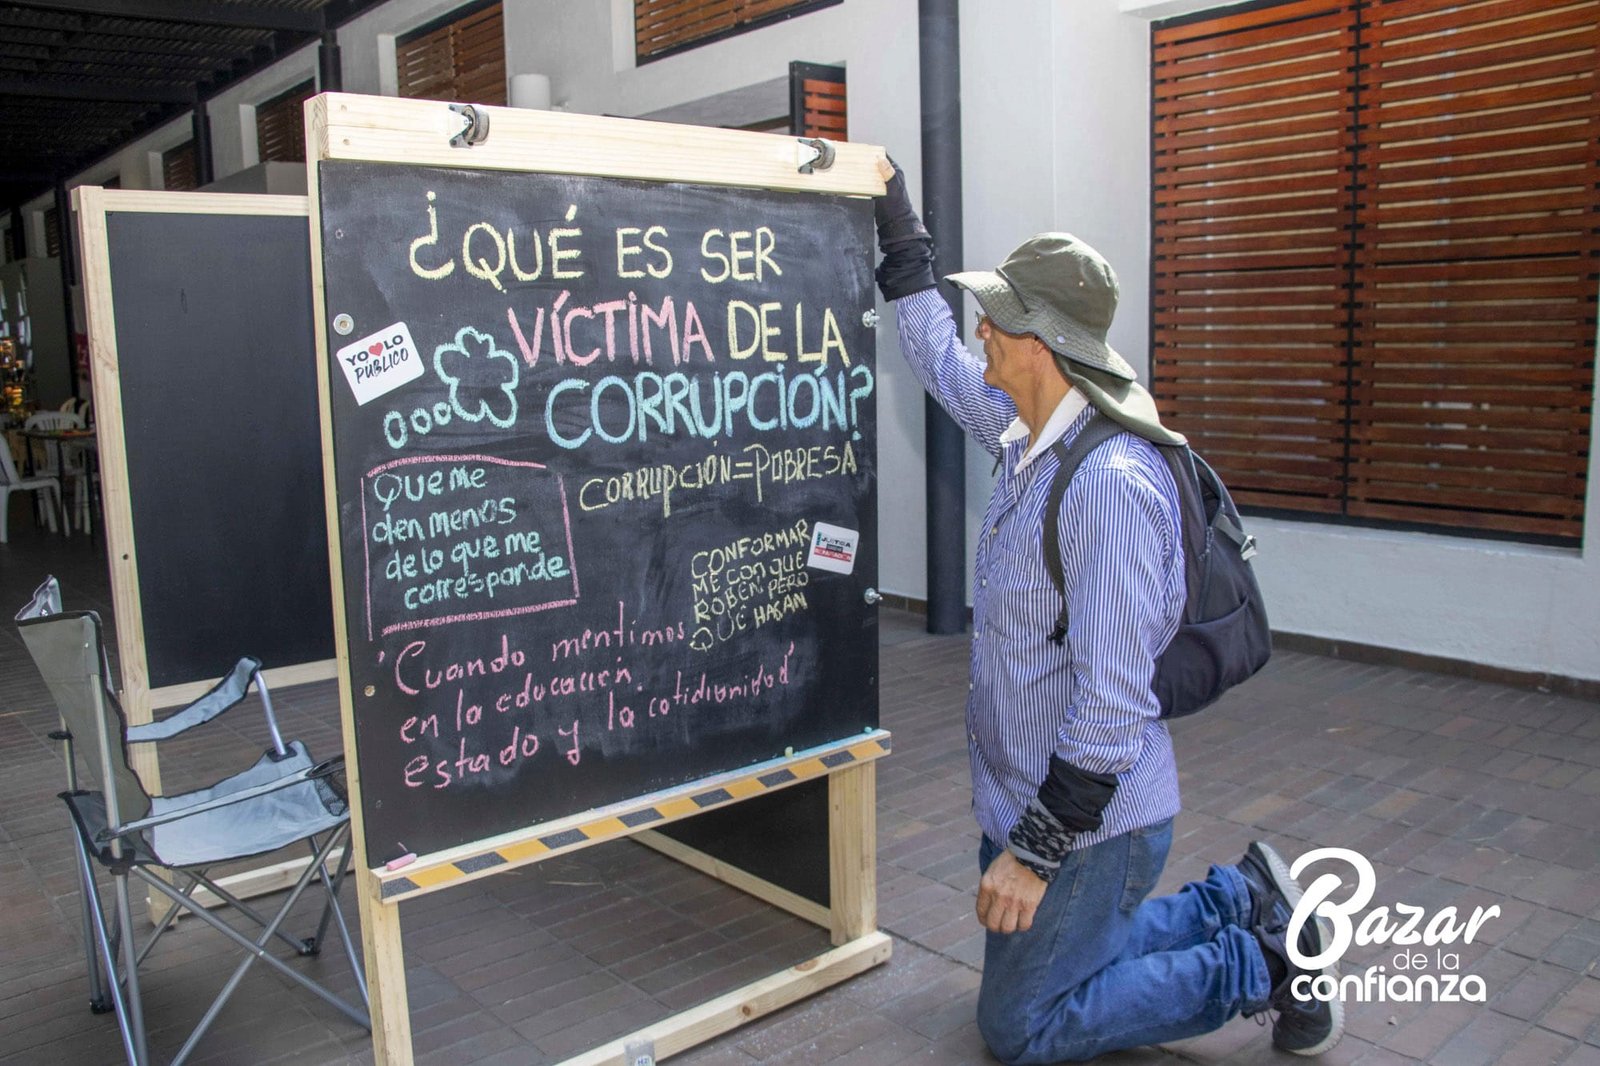 ¿QUÉ ES SER
VÍCTIMA DE LA
CORRUPCIÓN?
YO LO
PÚBLICO
CORRUPCIÓN=POBRESA
Que me
den menos
de lo que me
corresponde
CONFORMAR
ME CON QUE
ROBEN PERO
QUE HAGAN
"Cuando mentimos
en la educación
estado y la cotidianidad"
Bazar
de la
confianza